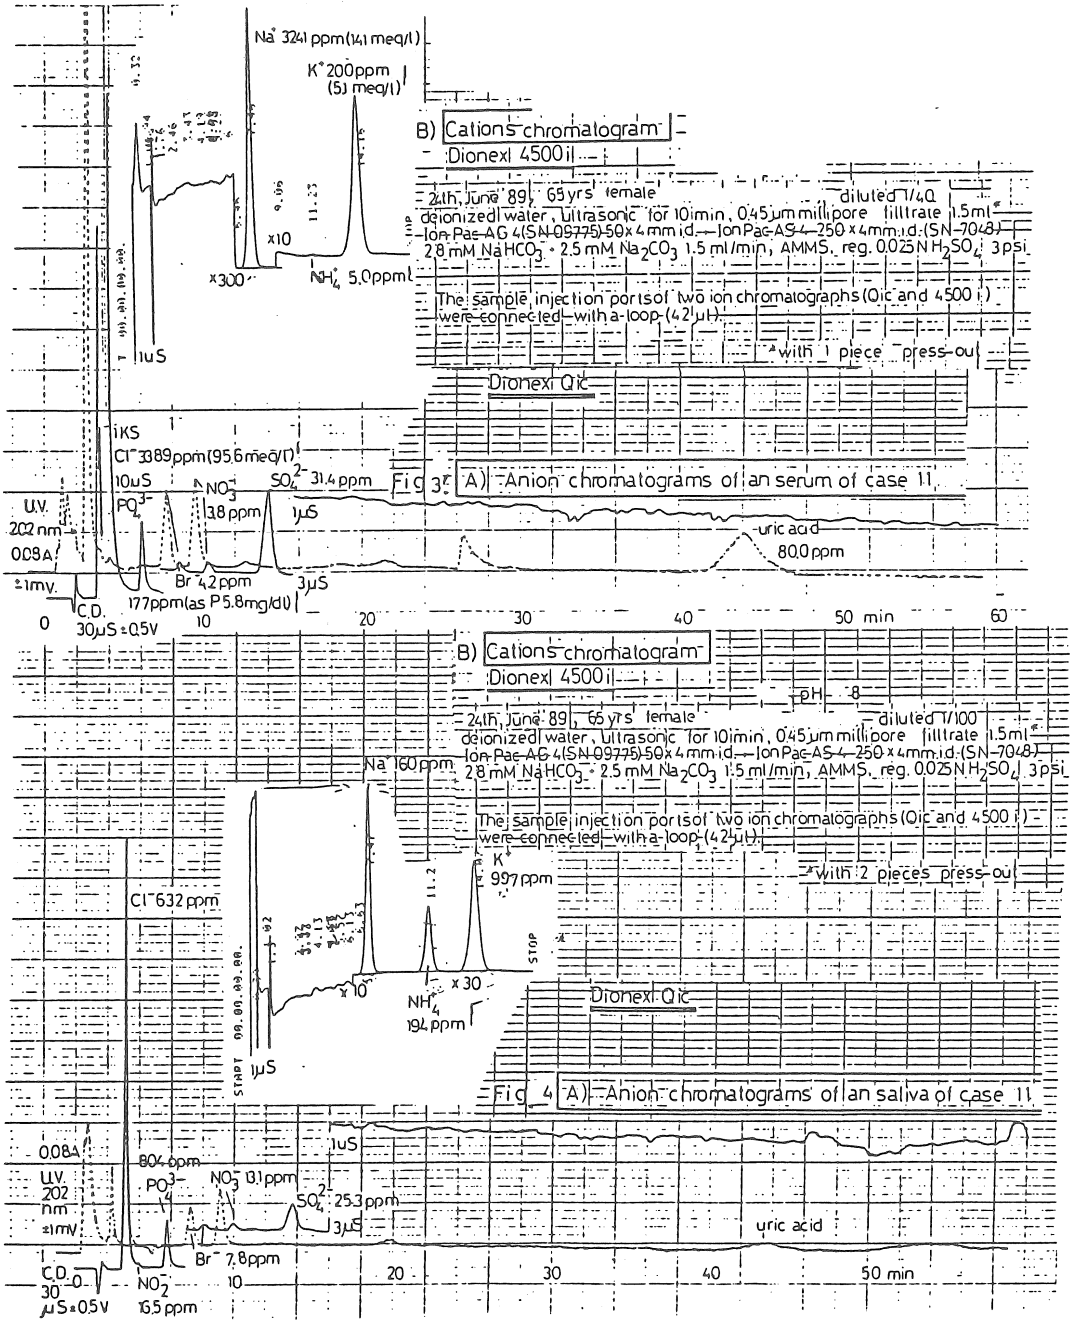 Na⁺ 3241 ppm (141 meq/l)
K⁺ 200 ppm
(5.1 meq/l)
0.32
2.46
9.06
11.23
x10
x300
NH₄⁺ 5.0 ppm
1μS
B) Cations chromatogram
Dionex 4500i
24th, June 89, 65 yrs female diluted 1/40
deionized water, ultrasonic for 10 min, 0.45 μm millipore filltrate 1.5 ml*
Ion Pac AG 4 (SN 09775) 50 x 4 mm i.d. Ion Pac AS-4 250 x 4 mm.i.d. (SN-7048)
2.8 mM NaHCO₃⁻ 2.5 mM Na₂CO₃ 1.5 ml/min, AMMS. reg. 0.025 N H₂SO₄ 3 psi
The sample injection ports of two ion chromatographs (Qic and 4500 i)
were connected with a loop (42 μl).
*with 1 piece press-out
Dionex Qic
Fig 3 A) Anion chromatograms of an serum of case 11.
Cl⁻ 3389 ppm (95.6 meq/l)
10μS
PO₄³⁻
NO₃⁻
3.8 ppm
SO₄²⁻ 31.4 ppm
1μS
U.V.
202 nm
0.08A
±1mv.
uric acid
80.0 ppm
Br⁻ 4.2 ppm
3μS
177 ppm (as P 5.8 mg/dl)
C.D.
30μS ± 0.5V
0 10 20 30 40 50 min 60
B) Cations chromatogram
Dionex 4500i
pH 8
24th, June 89, 65 yrs female diluted 1/100
deionized water, ultrasonic for 10 min, 0.45 μm millipore filltrate 1.5 ml*
Ion Pac AG 4 (SN 09775) 50 x 4 mm i.d. Ion Pac AS-4 250 x 4 mm.i.d. (SN-7048)
2.8 mM NaHCO₃⁻ 2.5 mM Na₂CO₃ 1.5 ml/min, AMMS. reg. 0.025 N H₂SO₄ 3 psi
The sample injection ports of two ion chromatographs (Qic and 4500 i)
were connected with a loop (42 μl).
*with 2 pieces press-out
Na⁺ 160 ppm
K⁺
997 ppm
11.2
4.13
STOP
x 10
x 30
NH₄⁺
194 ppm
START 00.00.00.00.
1μS
Dionex Qic
Fig 4 A) Anion chromatograms of an saliva of case 11
Cl⁻ 632 ppm
0.08A
U.V.
202
nm
±1mV
804 ppm
PO₄³⁻
NO₃⁻ 13.1 ppm
SO₄²⁻ 25.3 ppm
1μS
3μS
uric acid
Br⁻ 7.8 ppm
C.D.
30
μS ± 0.5V
NO₂⁻
16.5 ppm
0 10 20 30 40 50 min